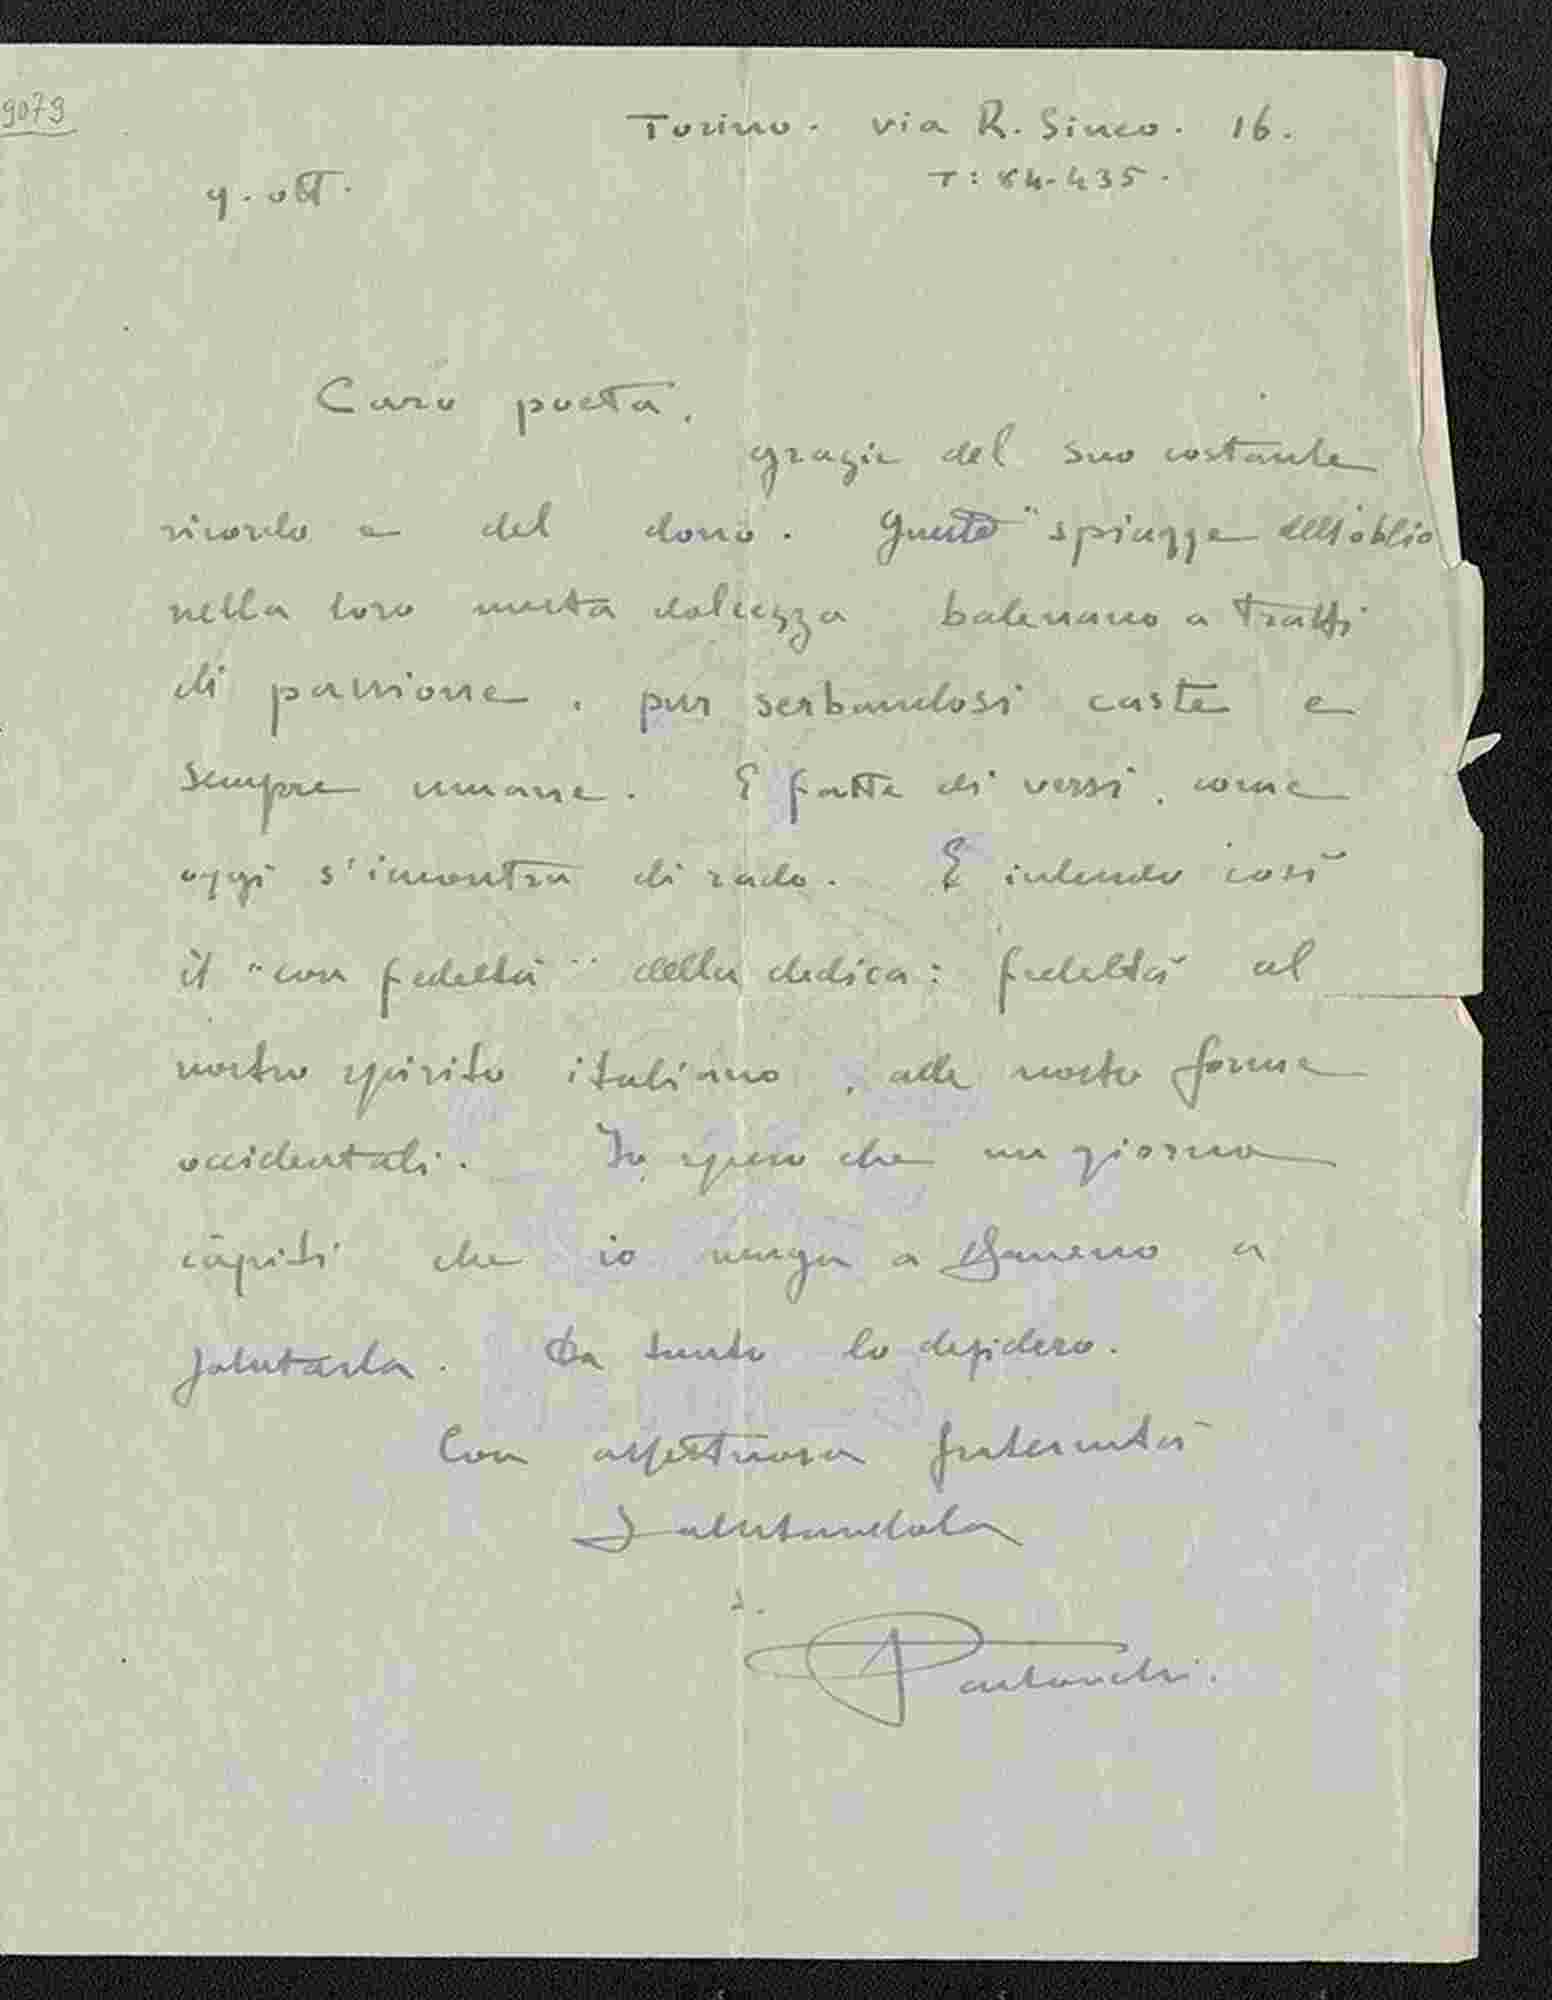 9079
Torino. via R. Sineo. 16.
T: 84-435.
9. ott.
Caro poeta,
grazie del suo costante
ricordo e del dono. Queste "spiagge dell'oblio
nella loro mesta dolcezza balenano a tratti
di passione, pur serbandosi caste e
sempre umane. E fatte di versi, come
oggi s'incontra di rado. E intendo così
il "con fedeltà" della dedica: fedeltà al
nostro spirito italiano, alle nostre forme
occidentali. Io spero che un giorno
càpiti che io venga a Sanremo a
salutarla. Da tanto lo desidero.
Con affettuosa fraternità
salutandola